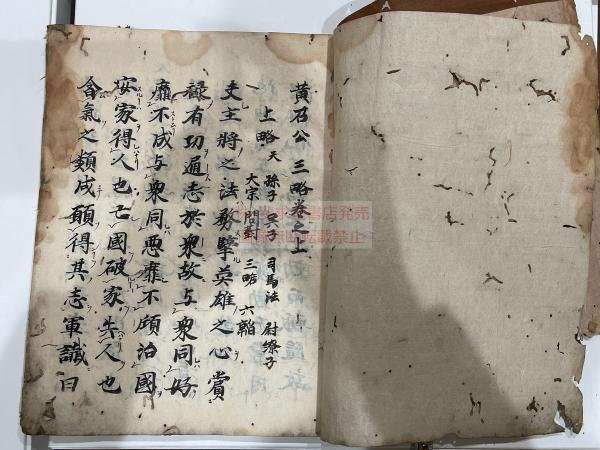 黄召公三略巻之上
一上略 天 孫子 呉子 司馬法 尉繚子
大宗問對 三略 六韜
夫主将之法務擥英雄之心賞
禄有功通志於衆故与衆同好
靡不成与衆同悪靡不傾治國
安家得人也亡國破家失人也
含氣之類咸願得其志軍讖曰
書店発売
無断転載禁止